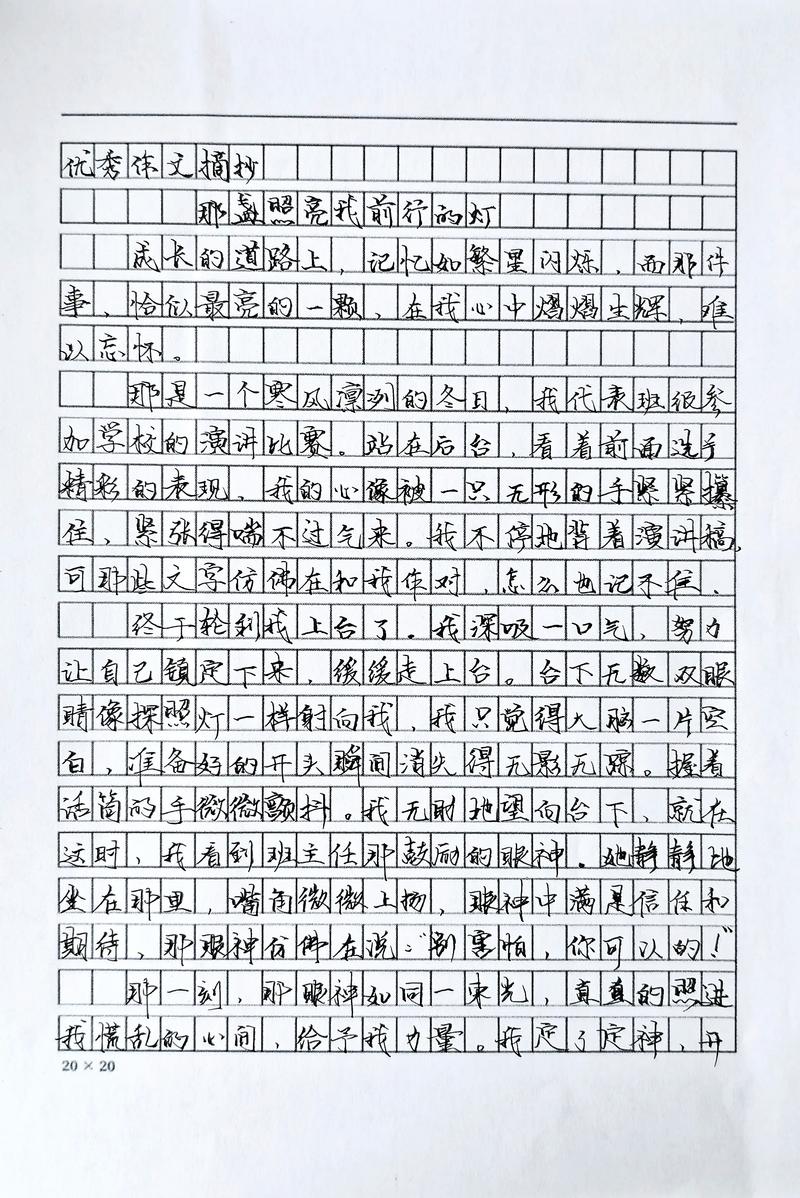 优秀作文摘抄
那盏照亮我前行的灯
成长的道路上，记忆如繁星闪烁，而那件
事，恰似最亮的一颗，在我心中熠熠生辉，难
以忘怀。
那是一个寒风凛冽的冬日，我代表班级参
加学校的演讲比赛。站在后台，看着前面选手
精彩的表现，我的心像被一只无形的手紧紧攥
住，紧张得喘不过气来。我不停地背着演讲稿，
可那些文字仿佛在和我作对，怎么也记不住。
终于轮到我上台了。我深吸一口气，努力
让自己镇定下来，缓缓走上台。台下无数双眼
睛像探照灯一样射向我，我只觉得大脑一片空
白，准备好的开头瞬间消失得无影无踪。握着
话筒的手微微颤抖。我无助地望向台下，就在
这时，我看到班主任那鼓励的眼神。她静静地
坐在那里，嘴角微微上扬，眼神中满是信任和
期待，那眼神仿佛在说：“别害怕，你可以的！”
那一刻，那眼神如同一束光，直直的照进
我慌乱的心间，给予我力量。我定了定神，开
20 × 20